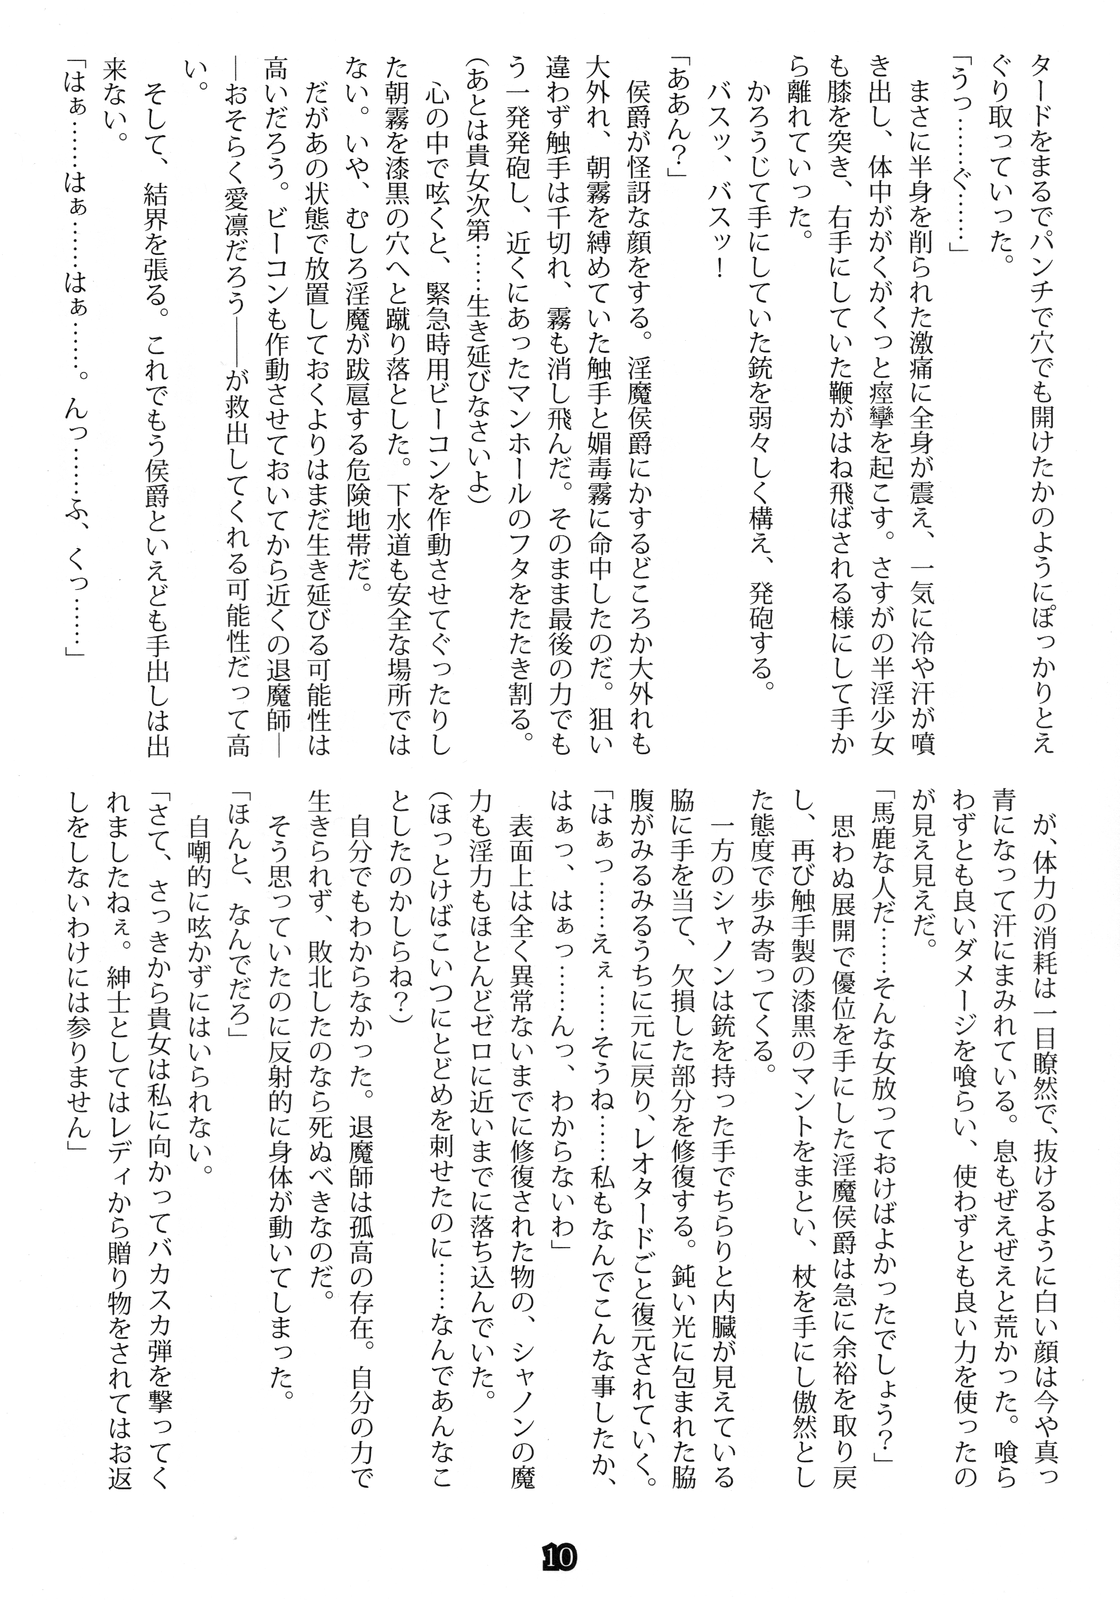 タードをまるでパンチで穴でも開けたかのようにぽっかりとえ
ぐり取っていった。
「うっ……ぐ……」
まさに半身を削られた激痛に全身が震え、一気に冷や汗が噴
き出し、体中ががくがくっと痙攣を起こす。さすがの半淫少女
も膝を突き、右手にしていた鞭がはね飛ばされる様にして手か
ら離れていった。
かろうじて手にしていた銃を弱々しく構え、発砲する。
バスッ、バスッ！
「ああん？」
侯爵が怪訝な顔をする。淫魔侯爵にかするどころか大外れも
大外れ、朝霧を縛めていた触手と媚毒霧に命中したのだ。狙い
違わず触手は千切れ、霧も消し飛んだ。そのまま最後の力でも
う一発発砲し、近くにあったマンホールのフタをたたき割る。
（あとは貴女次第……生き延びなさいよ）
心の中で呟くと、緊急時用ビーコンを作動させてぐったりし
た朝霧を漆黒の穴へと蹴り落とした。下水道も安全な場所では
ない。いや、むしろ淫魔が跋扈する危険地帯だ。
だがあの状態で放置しておくよりはまだ生き延びる可能性は
高いだろう。ビーコンも作動させておいてから近くの退魔師―
―おそらく愛凛だろう――が救出してくれる可能性だって高
い。
そして、結界を張る。これでもう侯爵といえども手出しは出
来ない。
「はぁ……はぁ……はぁ……。んっ……ふ、くっ……」
が、体力の消耗は一目瞭然で、抜けるように白い顔は今や真っ
青になって汗にまみれている。息もぜえぜえと荒かった。喰ら
わずとも良いダメージを喰らい、使わずとも良い力を使ったの
が見え見えだ。
「馬鹿な人だ……そんな女放っておけばよかったでしょう？」
思わぬ展開で優位を手にした淫魔侯爵は急に余裕を取り戻
し、再び触手製の漆黒のマントをまとい、杖を手にし傲然とし
た態度で歩み寄ってくる。
一方のシャノンは銃を持った手でちらりと内臓が見えている
脇に手を当て、欠損した部分を修復する。鈍い光に包まれた脇
腹がみるみるうちに元に戻り、レオタードごと復元されていく。
「はぁっ……えぇ……そうね……私もなんでこんな事したか、
はぁっ、はぁっ……んっ、わからないわ」
表面上は全く異常ないまでに修復された物の、シャノンの魔
力も淫力もほとんどゼロに近いまでに落ち込んでいた。
（ほっとけばこいつにとどめを刺せたのに……なんであんなこ
としたのかしらね？）
自分でもわからなかった。退魔師は孤高の存在。自分の力で
生きられず、敗北したのなら死ぬべきなのだ。
そう思っていたのに反射的に身体が動いてしまった。
「ほんと、なんでだろ」
自嘲的に呟かずにはいられない。
「さて、さっきから貴女は私に向かってバカスカ弾を撃ってく
れましたねぇ。紳士としてはレディから贈り物をされてはお返
しをしないわけには参りません」
10